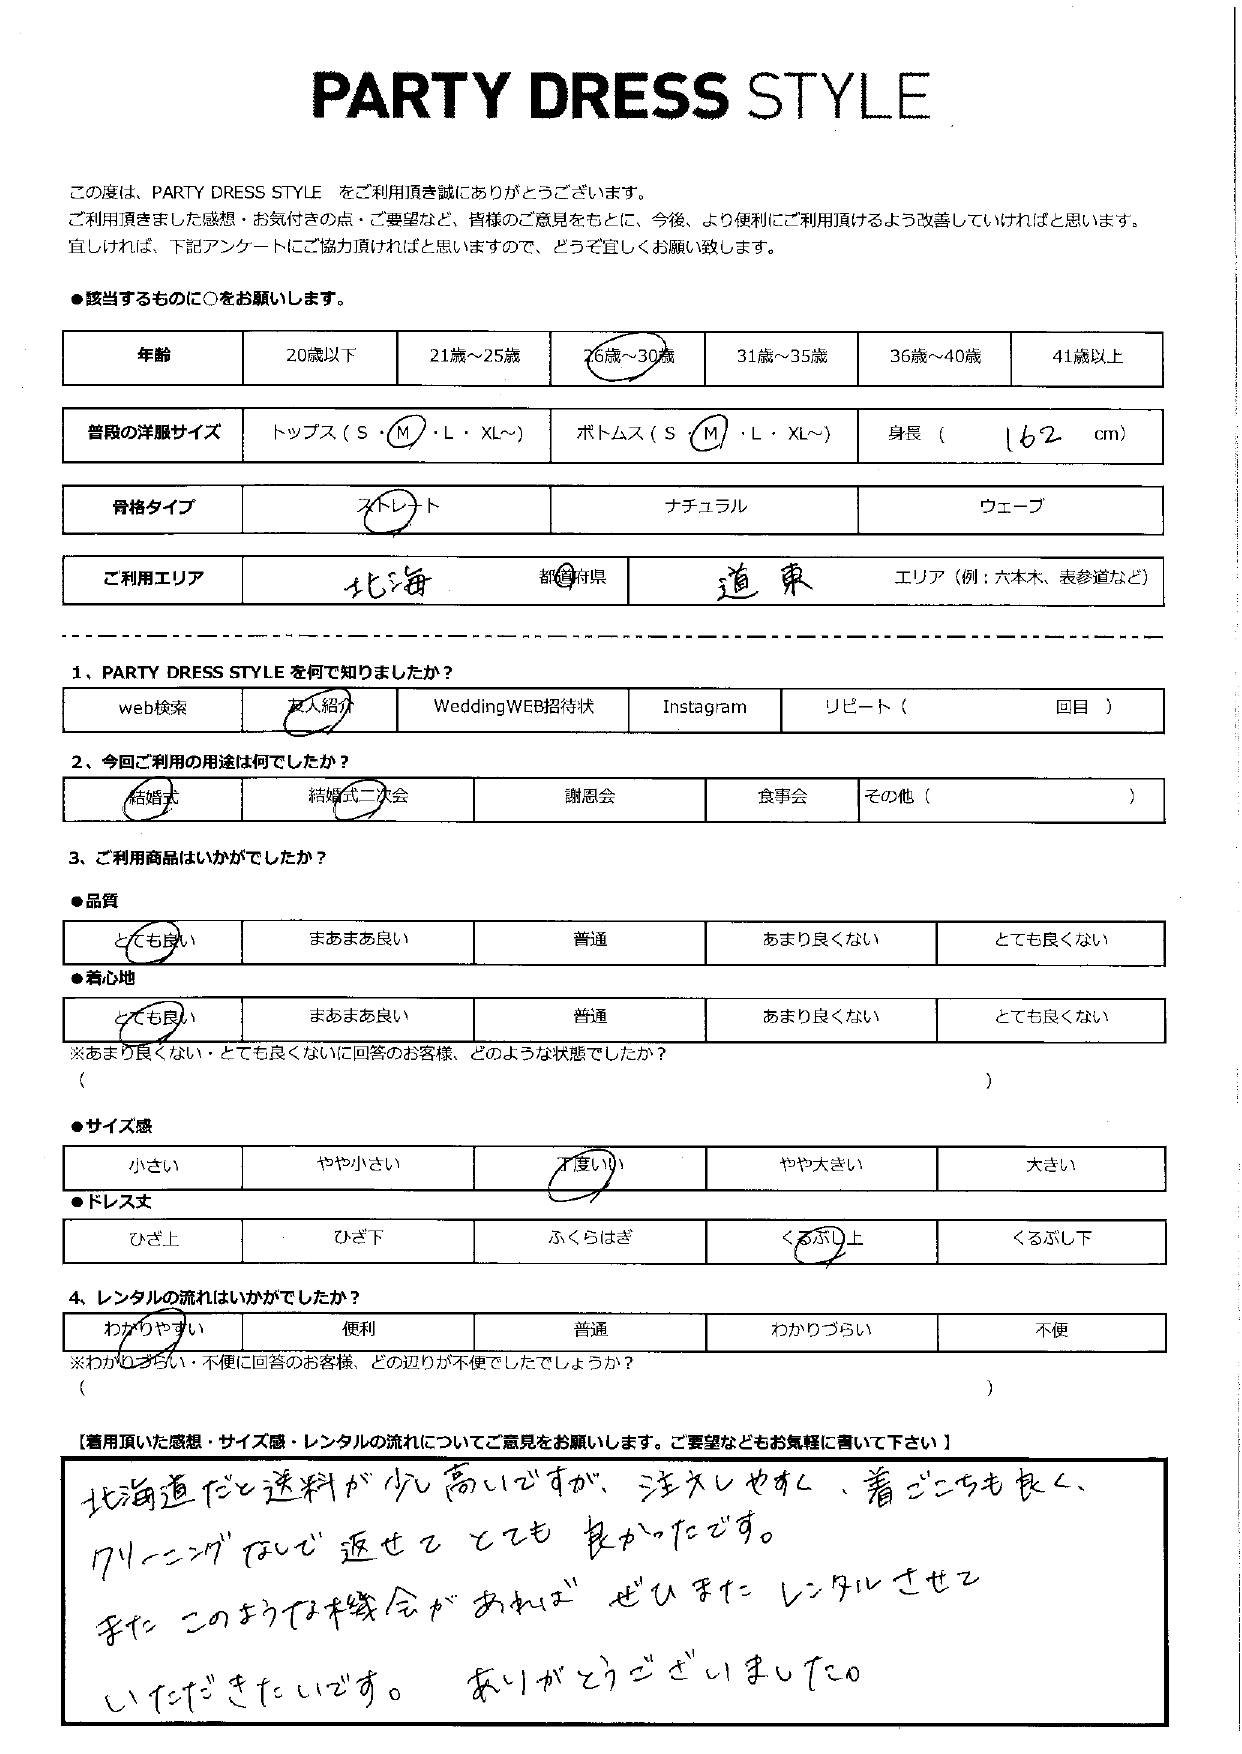 PARTY DRESS STYLE
この度は、PARTY DRESS STYLE をご利用頂き誠にありがとうございます。
ご利用頂きました感想・お気付きの点・ご要望など、皆様のご意見をもとに、今後、より便利にご利用頂けるよう改善していければと思います。
宜しければ、下記アンケートにご協力頂ければと思いますので、どうぞ宜しくお願い致します。
●該当するものに○をお願いします。
年齢 20歳以下 21歳～25歳 26歳～30歳 31歳～35歳 36歳～40歳 41歳以上
普段の洋服サイズ トップス ( S ・ M ・ L ・ XL～) ボトムス ( S ・ M ・ L ・ XL～) 身長 ( 162 cm)
骨格タイプ ストレート ナチュラル ウェーブ
ご利用エリア 北海 都道府県 道東 エリア（例：六本木、表参道など）
1、PARTY DRESS STYLE を何で知りましたか？
web検索 友人紹介 WeddingWEB招待状 Instagram リピート（ 回目 ）
2、今回ご利用の用途は何でしたか？
結婚式 結婚式二次会 謝恩会 食事会 その他（ ）
3、ご利用商品はいかがでしたか？
●品質
とても良い まあまあ良い 普通 あまり良くない とても良くない
●着心地
とても良い まあまあ良い 普通 あまり良くない とても良くない
※あまり良くない・とても良くないに回答のお客様、どのような状態でしたか？
（ ）
●サイズ感
小さい やや小さい 丁度いい やや大きい 大きい
●ドレス丈
ひざ上 ひざ下 ふくらはぎ くるぶし上 くるぶし下
4、レンタルの流れはいかがでしたか？
わかりやすい 便利 普通 わかりづらい 不便
※わかりづらい・不便に回答のお客様、どの辺りが不便でしたでしょうか？
（ ）
【着用頂いた感想・サイズ感・レンタルの流れについてご意見をお願いします。ご要望などもお気軽に書いて下さい】
北海道だと送料が少し高いですが、注文しやすく、着ごこちも良く、
クリーニングなしで返せてとても良かったです。
またこのような機会があればぜひまたレンタルさせて
いただきたいです。 ありがとうございました。